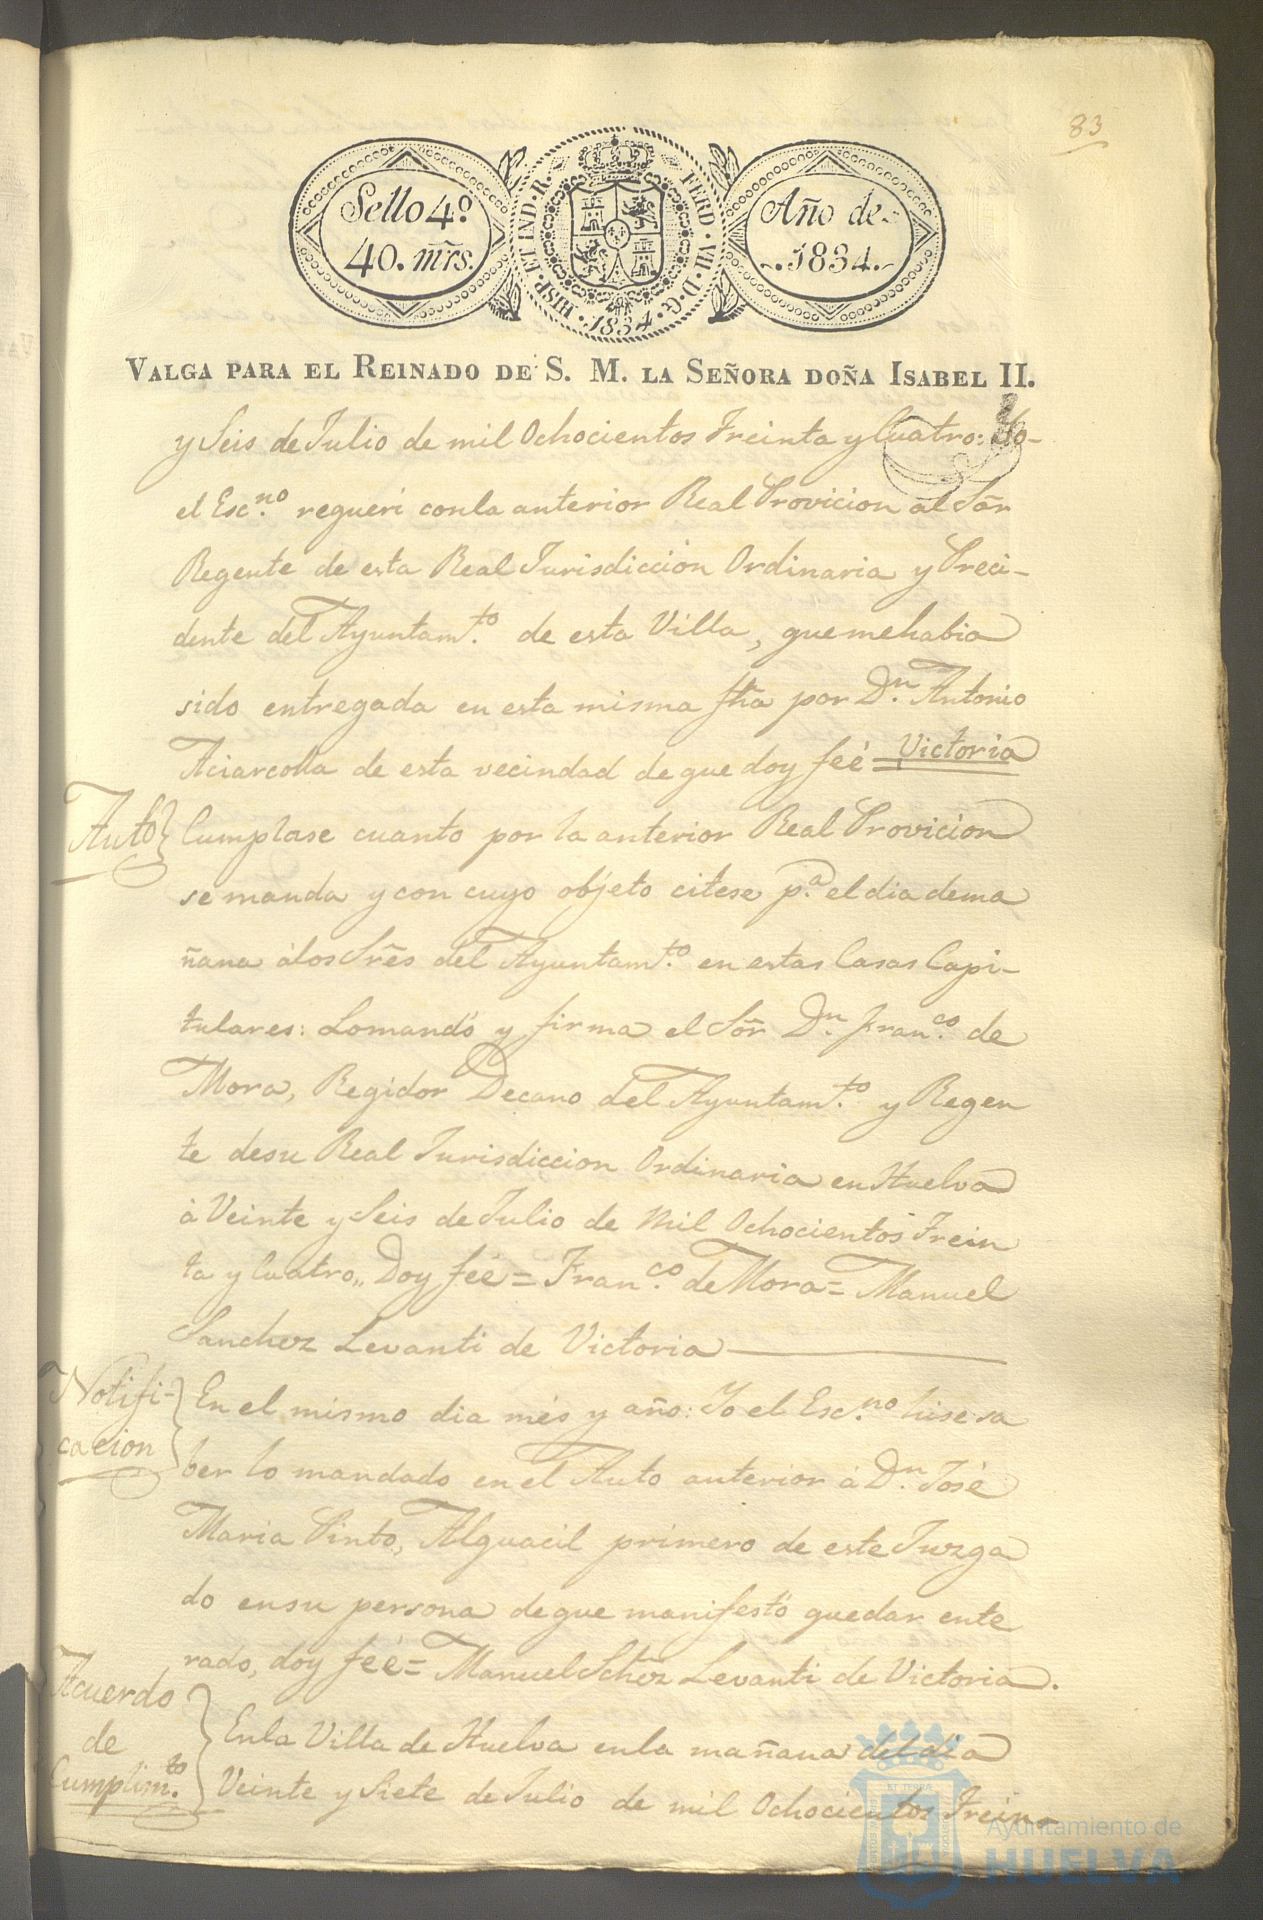 83
Sello 4º
40. mrs.
HISP. ET IND. R. FERD. VII. D. G. 1834.
Año de
1834.
VALGA PARA EL REINADO DE S. M. LA SEÑORA DOÑA ISABEL II.
y Seis de Julio de mil Ochocientos Treinta y Cuatro: Yo-
el Esc.no requeri conla anterior Real Provicion al Sōr
Regente de esta Real Jurisdiccion Ordinaria y Preci-
dente del Ayuntam.to de esta Villa, quemehabia
sido entregada en esta misma fha por D.n Antonio
de esta vecindad de que doy feé = Victoria
Auto} Cumplase cuanto por la anterior Real Provicion
se manda y con cuyo objeto citese p.a el dia dema
ñana álos Srēs del Ayuntam.to en estas Casas Capi-
tulares: Lomandó y firma el Sōr D.n Fran.co de
Mora, Regidor Decano del Ayuntam.to y Regen
te desu Real Jurisdiccion Ordinaria en Huelva
á Veinte y Seis de Julio de Mil Ochocientos Trein
ta y Cuatro,, Doy feé = Fran.co de Mora = Manuel
Sanchez Levanti de Victoria
Notifi-
cacion} En el mismo dia més y año: Yo el Esc.no hise sa
ber lo mandado en el Auto anterior á D.n José
Maria Pinto, Alguacil primero de este Juzga
do ensu persona deque manifestó quedar ente
rado, doy feé = Manuel Schēz Levanti de Victoria.
Acuerdo
de
Cumplim.to} Enla Villa de Huelva enla mañana del dia
Veinte y Siete de Julio de mil Ochocientos Trein-
Ayuntamiento de
HUELVA